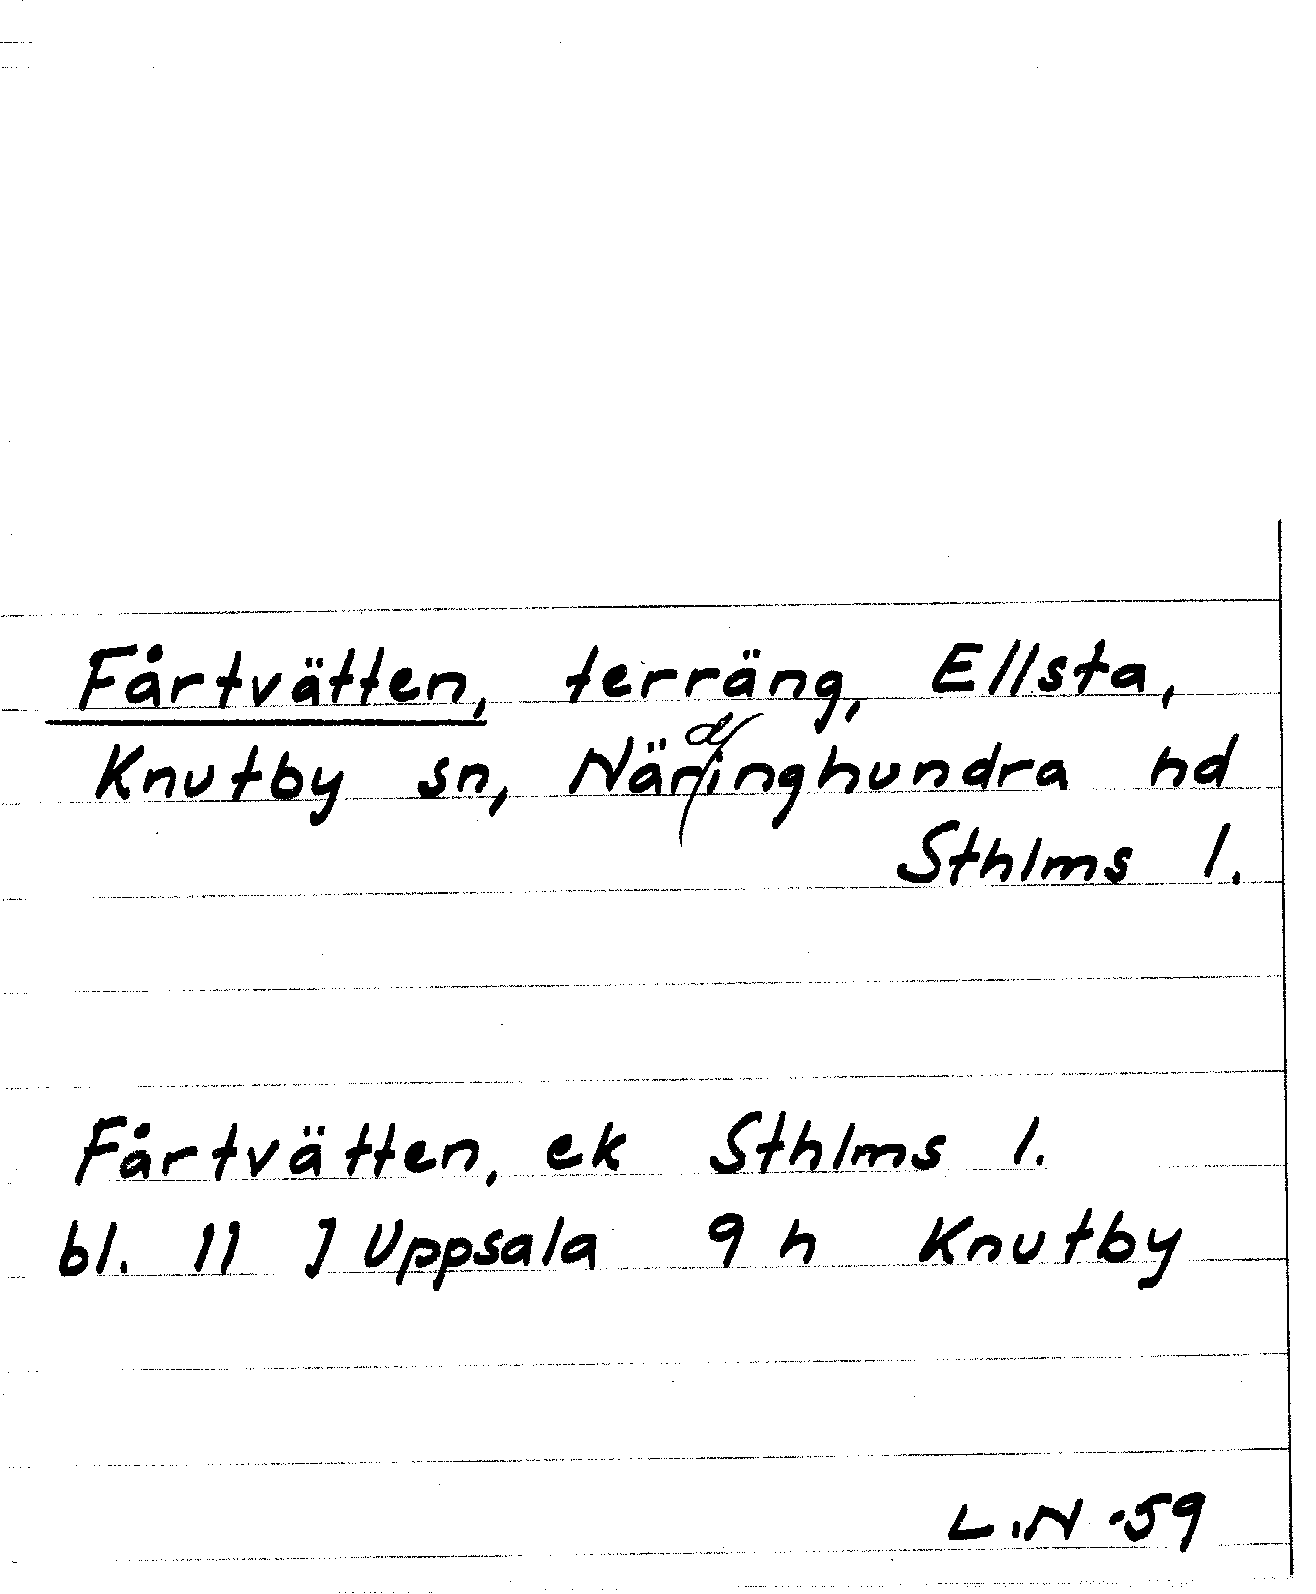 Fårtvätten, terräng, Ellsta,
Knutby sn, Närdinghundra hd
Sthlms l.
Fårtvätten, ek Sthlms l.
bl. 11 J Uppsala 9 h Knutby
L.N -59